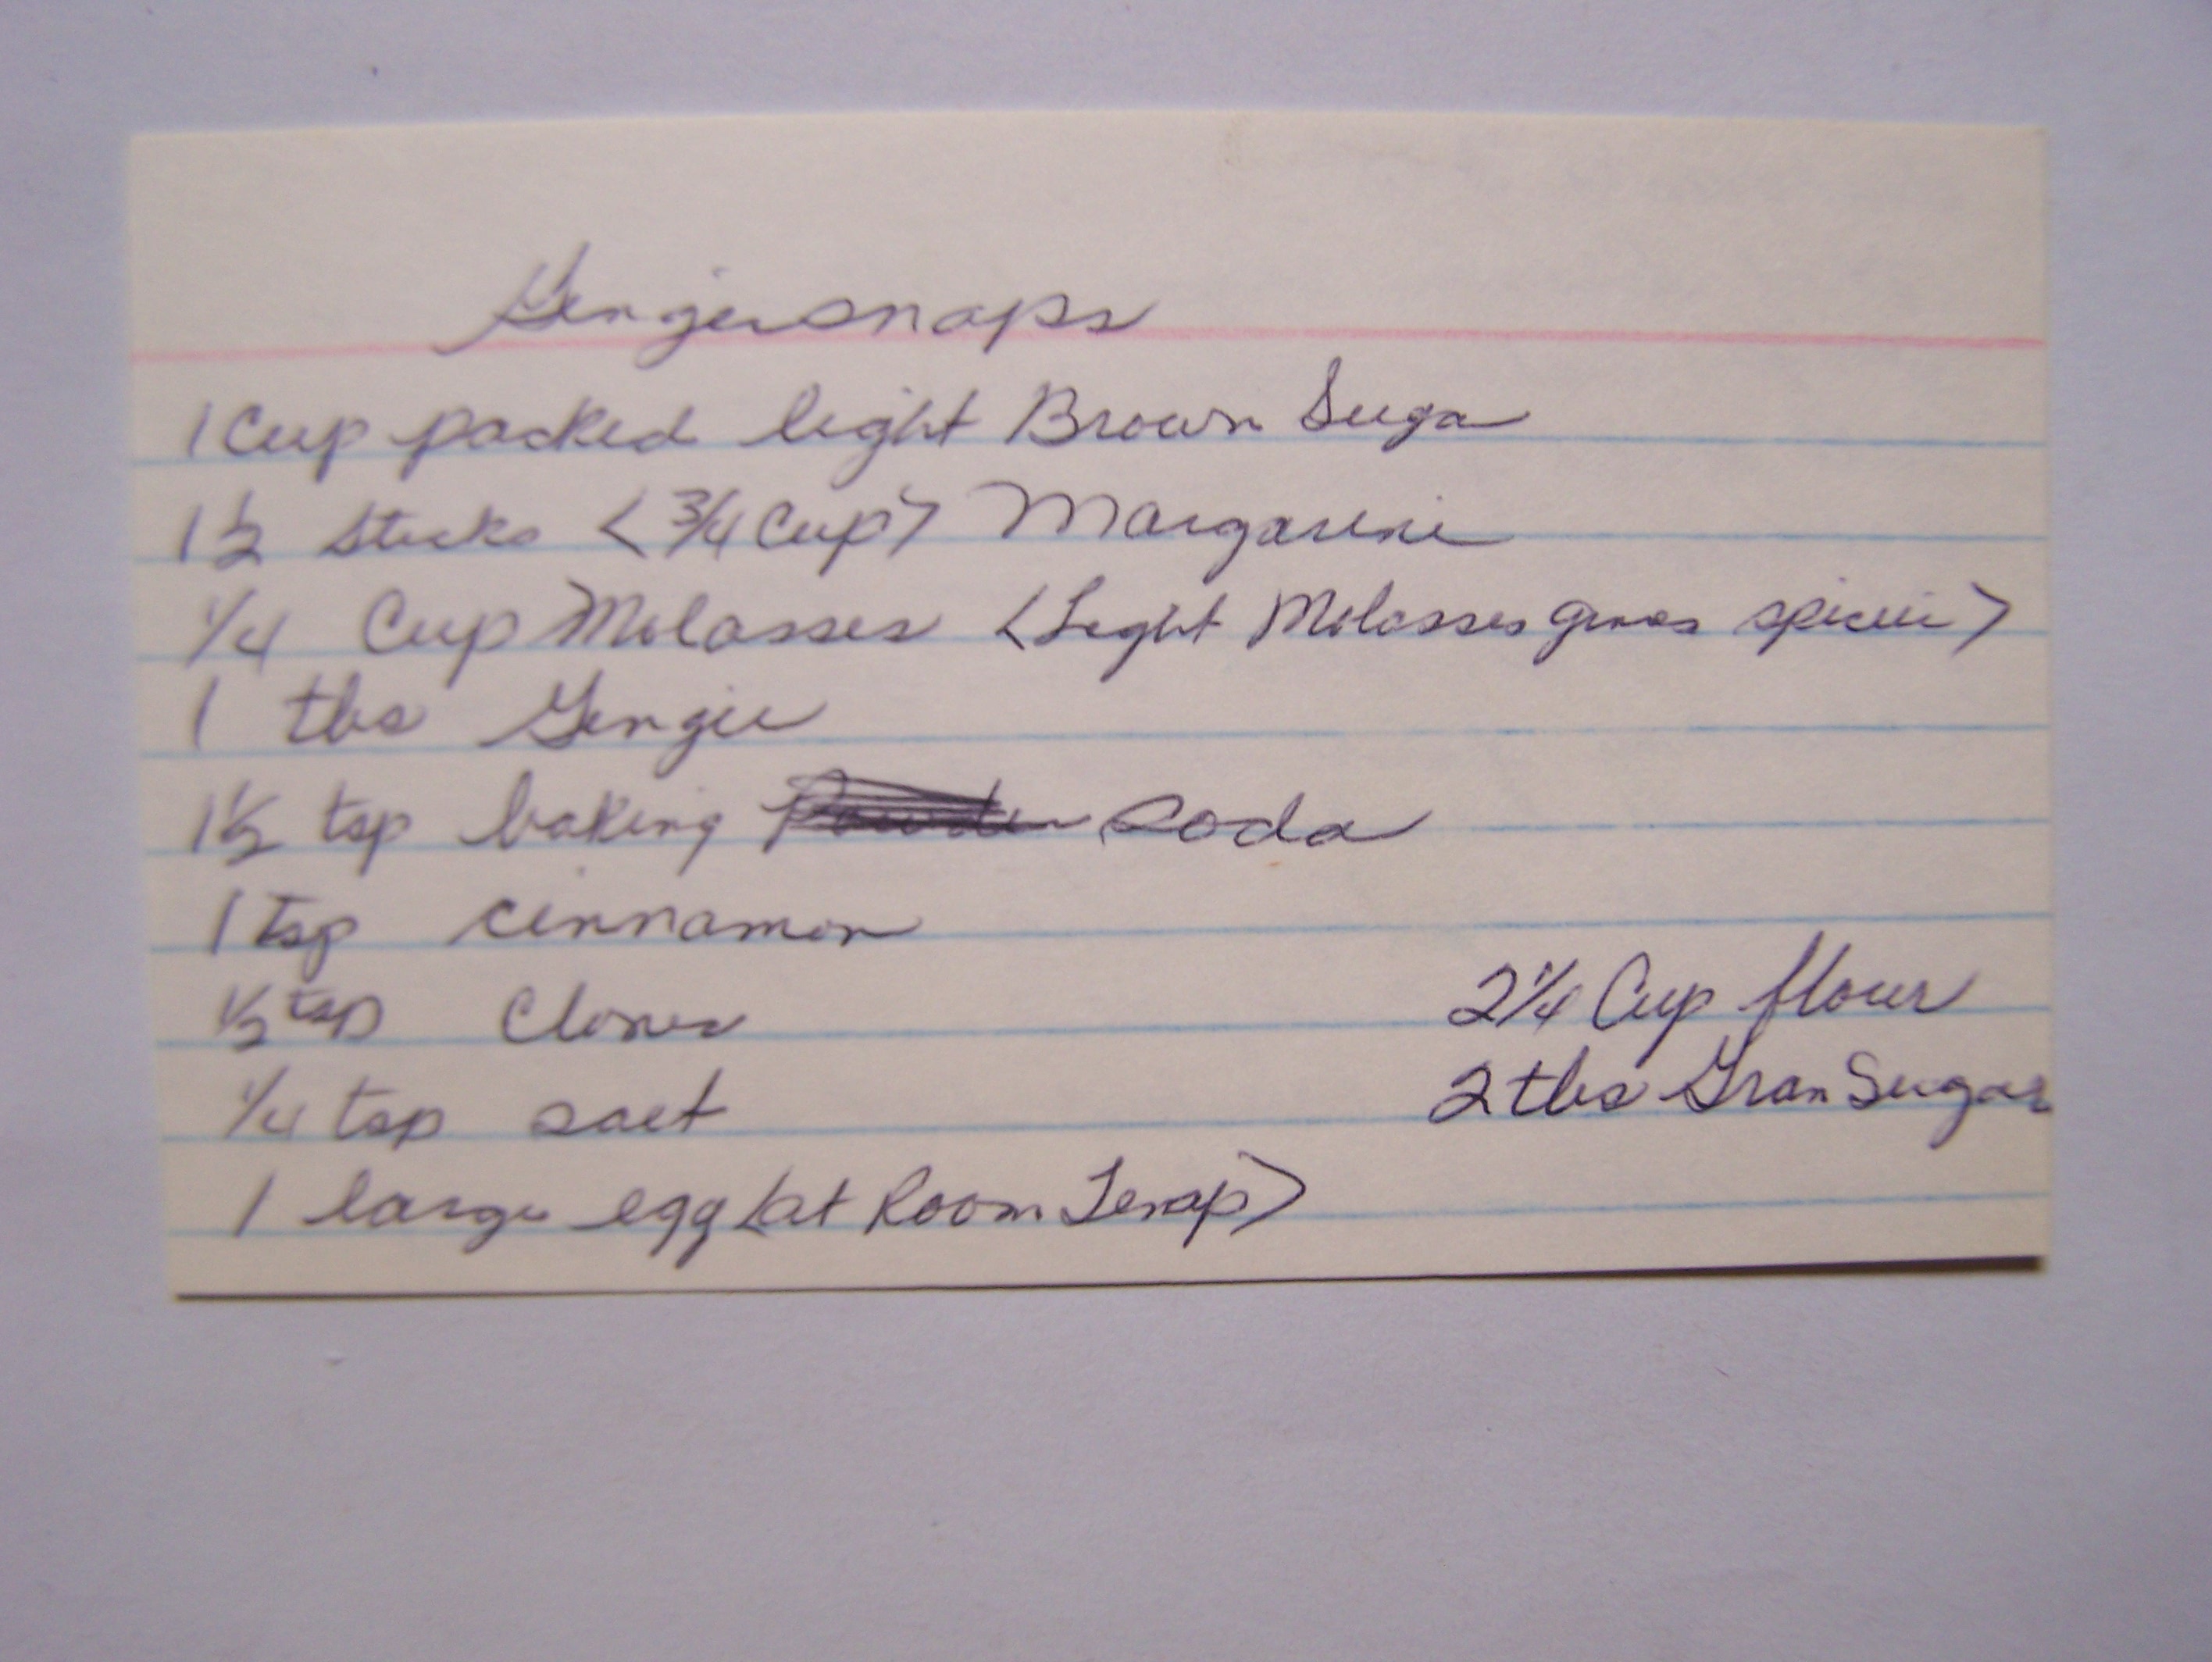 Gingersnaps
1 Cup packed light Brown Suga
1 1/2 sticks <3/4 Cup> Margarine
1/4 Cup Molasses <Light Molasses spicier>
1 tbs Ginger
1 1/2 tsp baking Powder soda
1 tsp cinnamon
1/2 tsp Cloves
1/4 tsp salt
1 large egg <at Room Temp>
2 1/4 Cup flour
2 tbs Gran Sugar